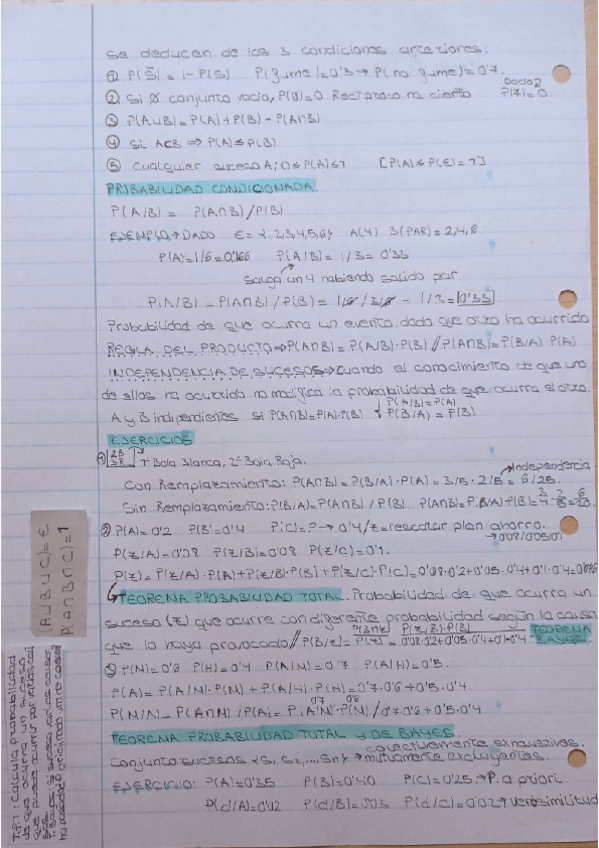 Se deducen de las 3 condiciones anteriores:
① P(S̄) = 1 - P(S) P(fume)=0'3 → P(no fume)=0'7.
② Si Ø conjunto vacio, P(Ø)=0. Reciproco no cierto Dado? P(7)=0
③ P(A∪B)=P(A)+P(B)-P(A∩B)
④ Si A⊂B ⇒ P(A)≤P(B)
⑤ Cualquier suceso A; 0≤P(A)≤1 [P(A)≤P(E)=1]
PROBABILIDAD CONDICIONADA.
P(A/B) = P(A∩B)/P(B)
EJEMPLO → DADO E=1,2,3,4,5,6 A(4) B(PAR)=2,4,6
P(A)=1/6=0'166 P(A/B)=1/3=0'33
Salga un 4 habiendo salido par
P(A/B) = P(A∩B)/P(B) = 1/6/3/6 = 1/3=0'33
Probabilidad de que ocurra un evento, dado que otro ha ocurrido
REGLA DEL PRODUCTO ⇒ P(A∩B)=P(A/B)·P(B)//P(A∩B)=P(B/A)·P(A)
INDEPENDENCIA DE SUCESOS → Cuando el conocimiento de que uno
de ellos ha ocurrido no modifica la probabilidad de que ocurra el otro.
A y B indipendientes si P(A∩B)=P(A)·P(B) P(A/B)=P(A) P(B/A)=P(B)
EJERCICIOS
① 2B 3R 1ª Bola Blanca, 2ª Bola Roja.
Con Remplazamiento: P(A∩B)=P(B/A)·P(A)=3/5·2/5=6/25. → Independencia
Sin Remplazamiento: P(B/A)=P(A∩B)/P(B) P(A∩B)=P(B/A)·P(B)=
② P(A)=0'2 P(B)=0'4 P(C)= → 0'4/z=rescatar plan ahorro.
P(z/A)=0'08 P(z/B)= P(z/C)=0'1.
P(z)=P(z/A)·P(A)+P(z/B)·P(B)+P(z/C)·P(C)=0'08·0'2+0'05·0'4+0'1·0'4=0'076
TEOREMA PROBABILIDAD TOTAL. Probabilidad de que ocurra un
suceso (z) que ocurre con diferente probabilidad según la causa
que lo haya provocado // P(B/z)= P(B∩z)/P(z) = P(z/B)·P(B)/0'08·0'2+0'05·0'4+0'1·0'4 TEOREMA BAYES
③ P(M)=0'6 P(H)=0'4 P(A/M)=0'7 P(A/H)=0'5.
P(A)=P(A/M)·P(M)+P(A/H)·P(H)=0'7·0'6+0'5·0'4
P(M/A)=P(A∩M)/P(A)=P(A/M)·P(M)/0'7·0'6+0'5·0'4
0'7 0'6
TEOREMA PROBABILIDAD TOTAL Y DE BAYES.
Conjunto sucesos {S1, S2, ... Sn} → colectivamente exhaustivos. mutuamente excluyentes.
EJERCICIO: P(A)=0'35 P(B)=0'40 P(C)=0'25 → P. a priori
P(d/A)=0'02 P(d/B)=0'03 P(d/C)=0'02 → verosimilitud
(A∪B∪C)=E
P(A∩B∩C)=1
T.P.T: Calcula probabilidad
de que ocurra un suceso
que puede ocurrir por varias cau
sas.
T. Bayes: